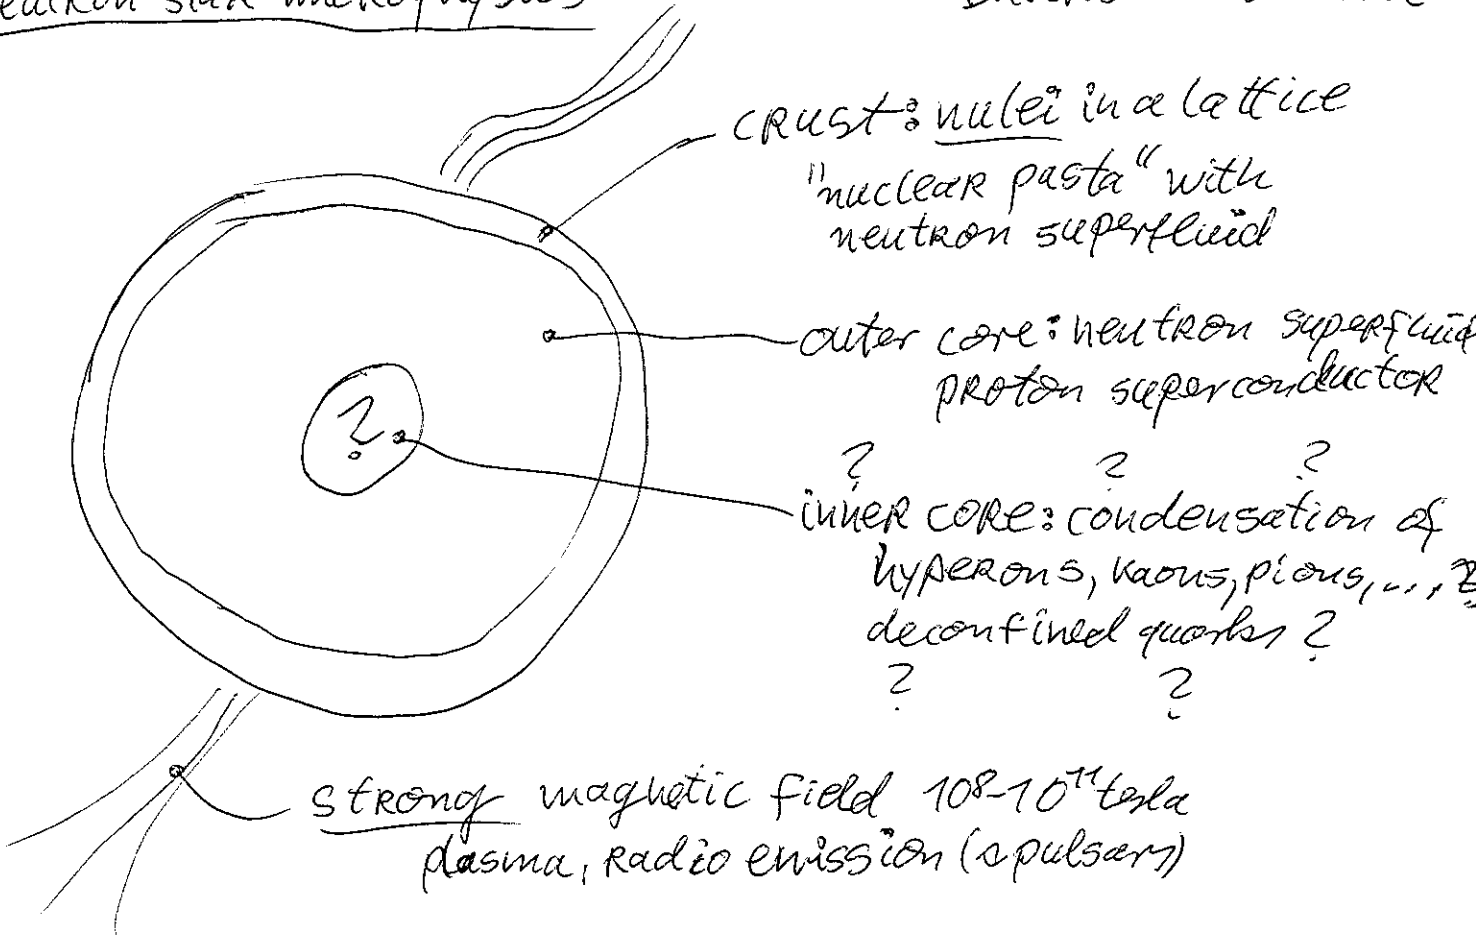 neutron star microphysics
crust: nulei in a lattice
"nuclear pasta" with
neutron superfluid
outer core: neutron superfluid
proton superconductor
? ? ?
inner core: condensation of
hyperons, kaons, pions, ..., ?
deconfined quarks ?
? ?
?
strong magnetic field 10⁸-10¹¹ tesla
plasma, radio emission (pulsars)